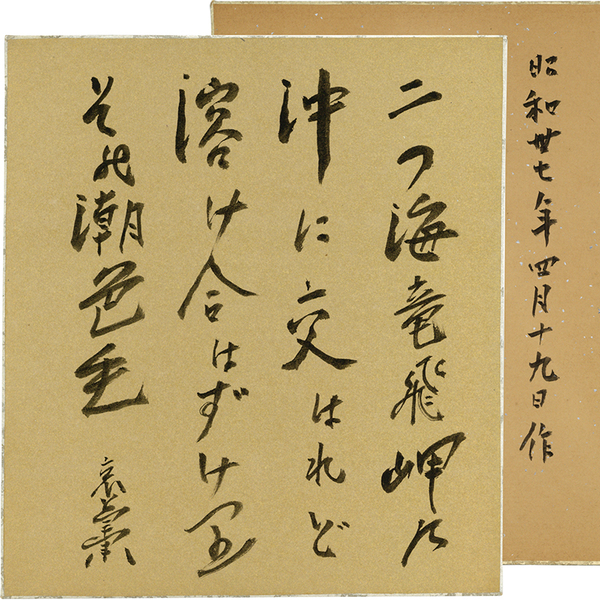 二つ海竜飛岬の
沖に交はれど
溶け合はずけり
その潮色も
哀草果
昭和丗七年四月十九日作